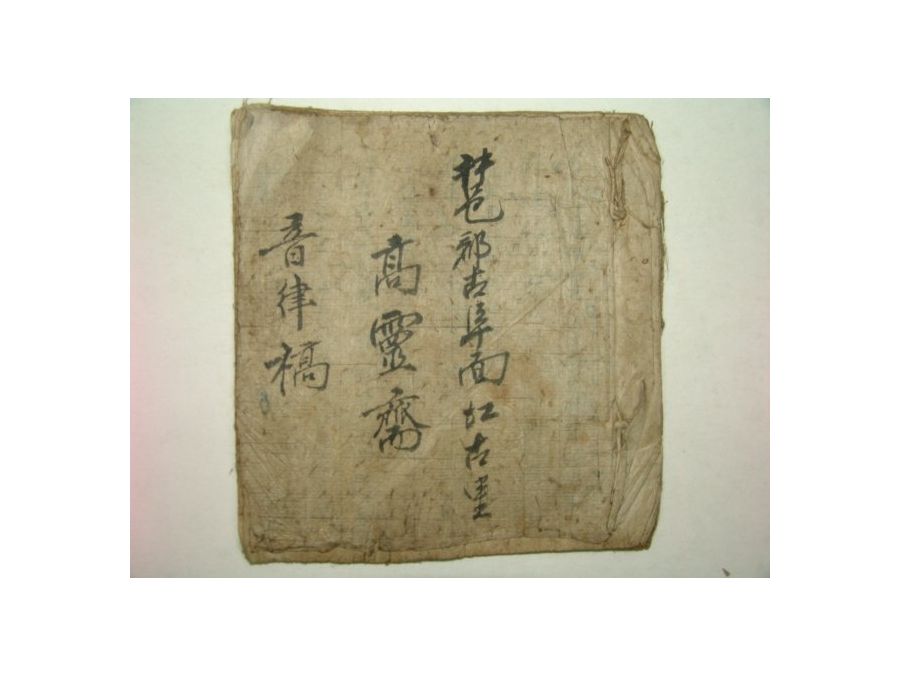 井邑郡古阜面江古里
高靈齋
音律槁